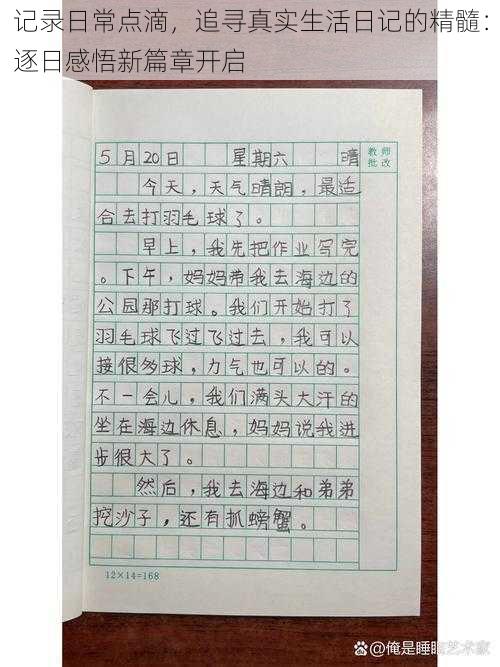 记录日常点滴，追寻真实生活日记的精髓：
逐日感悟新篇章开启
5月20日 星期六 晴
教师
批改
今天，天气晴朗，最适
合去打羽毛球了。
早上，我先把作业写完
。下午，妈妈带我去海边的
公园那打球。我们开始打了
羽毛球飞过飞过去，我可以
接很多球，力气也可以的。
不一会儿，我们满头大汗的
坐在海边休息，妈妈说我进
步很大了。
然后，我去海边和弟弟
挖沙子，还有抓螃蟹。
12×14=168
@俺是睡眠艺术家